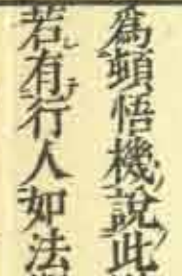 爲頓悟機説此
若有行人如法